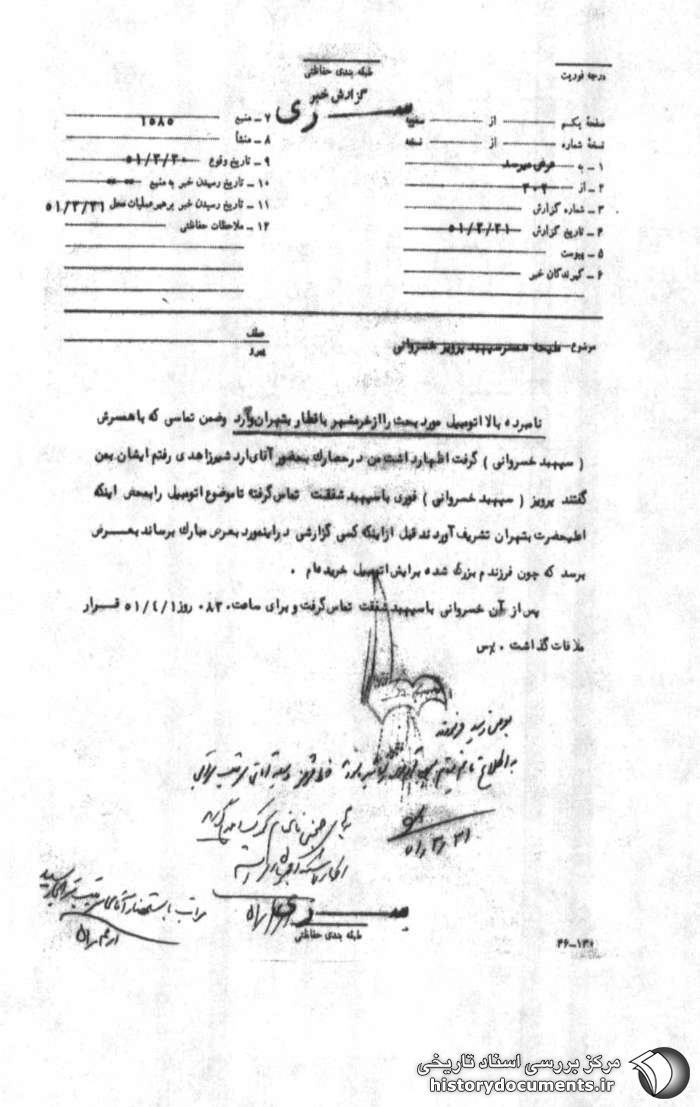 طبقه بندی حفاظتی
گزارش خبر
درجه فوریت
سری
صفحه یکم از صفحه
نسخه شماره از نسخه
۱ ـ به عرض میرسد
۲ ـ از ۳۰۲
۳ ـ شماره گزارش
۴ ـ تاریخ گزارش ۵۱/۳/۳۱
۵ ـ پیوست
۶ ـ گیرندگان خبر
۷ ـ منبع ۱۵۸۵
۸ ـ منشأ
۹ ـ تاریخ وقوع ۵۱/۳/۳۰
۱۰ ـ تاریخ رسیدن خبر به منبع " "
۱۱ ـ تاریخ رسیدن خبر برهبر عملیات محل ۵۱/۳/۳۱
۱۲ ـ ملاحظات حفاظتی
موضوع ملیحه همسر سپهبد پرویز خسروانی
عطف
پیرو
نامبرده بالا اتومبیل مورد بحث را از خرمشهر با قطار بتهران وارد وضمن تماسی که با همسرش
( سپهبد خسروانی ) گرفت اظهار داشت من در حصارك بحضور آقای ارد شیر زاهدی رفتم ایشان بمن
گفتند پرویز ( سپهبد خسروانی ) فوری با سپهبد شفقت تماس گرفته تا موضوع اتومبیل را بمحض اینکه
اعلیحضرت بتهران تشریف آوردند قبل از اینکه کسی گزارشی در اینمورد بعرض مبارك برساند بعرض
برسد که چون فرزندم بزرگ شده برایش اتومبیل خریده ام .
پس از آن خسروانی با سپهبد شفقت تماس گرفت و برای ساعت ۰۸۳۰ روز ۵۱/۴/۱ قرار
ملاقات گذاشت .
بعرض رسید فرمودند
۵۱/۳/۳۱
سری
طبقه بندی حفاظتی
۲۶-۱۳۰
مرکز بررسی اسناد تاریخی
historydocuments.ir